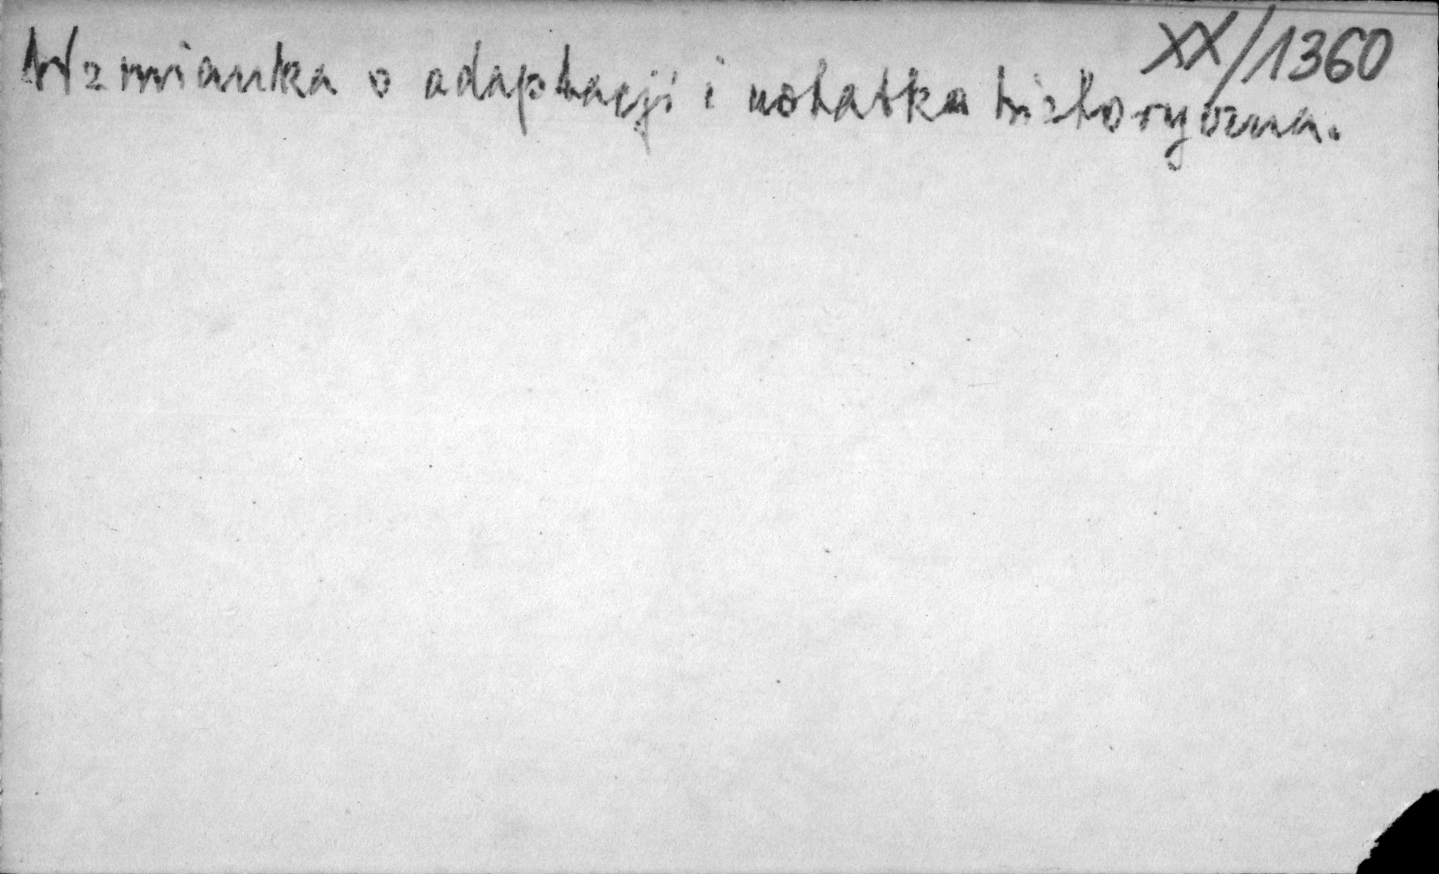 XX/1360
Wzmianka o adaptacji i notatka historyczna.